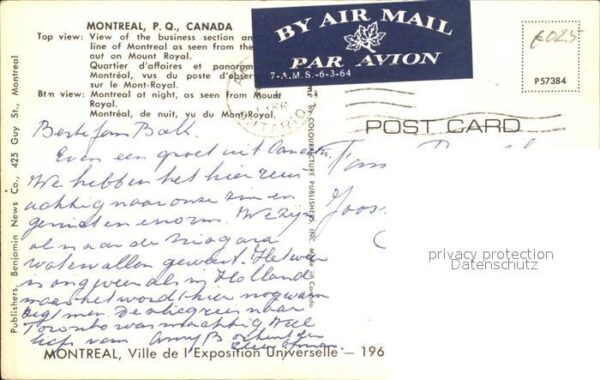 MONTREAL, P. Q., CANADA
Top view: View of the business section an
line of Montreal as seen from the
out on Mount Royal.
Quartier d'affaires et panoram
Montréal, vus du poste d'obser
sur le Mont-Royal.
Btm view: Montreal at night, as seen from Mount
Royal.
Montréal, de nuit, vu du Mont-Royal.
BY AIR MAIL
PAR AVION
7-A.M.S.-6-3-64
€025
P57384
POST CARD
Publishers, Benjamin News Co., 425 Guy St., Montreal
by COLOURPICTURE PUBLISHERS, INC. Made in Canada
ONTARIO
Beste Jan
Even een groet uit Canada
We hebben het hier reus
achtig naar onze zin en
genieten enorm. We zijn
al naar de Niagara
watervallen geweest. Het weer
is ongeveer als in Holland
maar het wordt hier nog warm
zegt men. De vliegreis naar
Toronto was machtig. Veel
liefs van
Joos
privacy protection
Datenschutz
MONTREAL, Ville de l'Exposition Universelle — 196